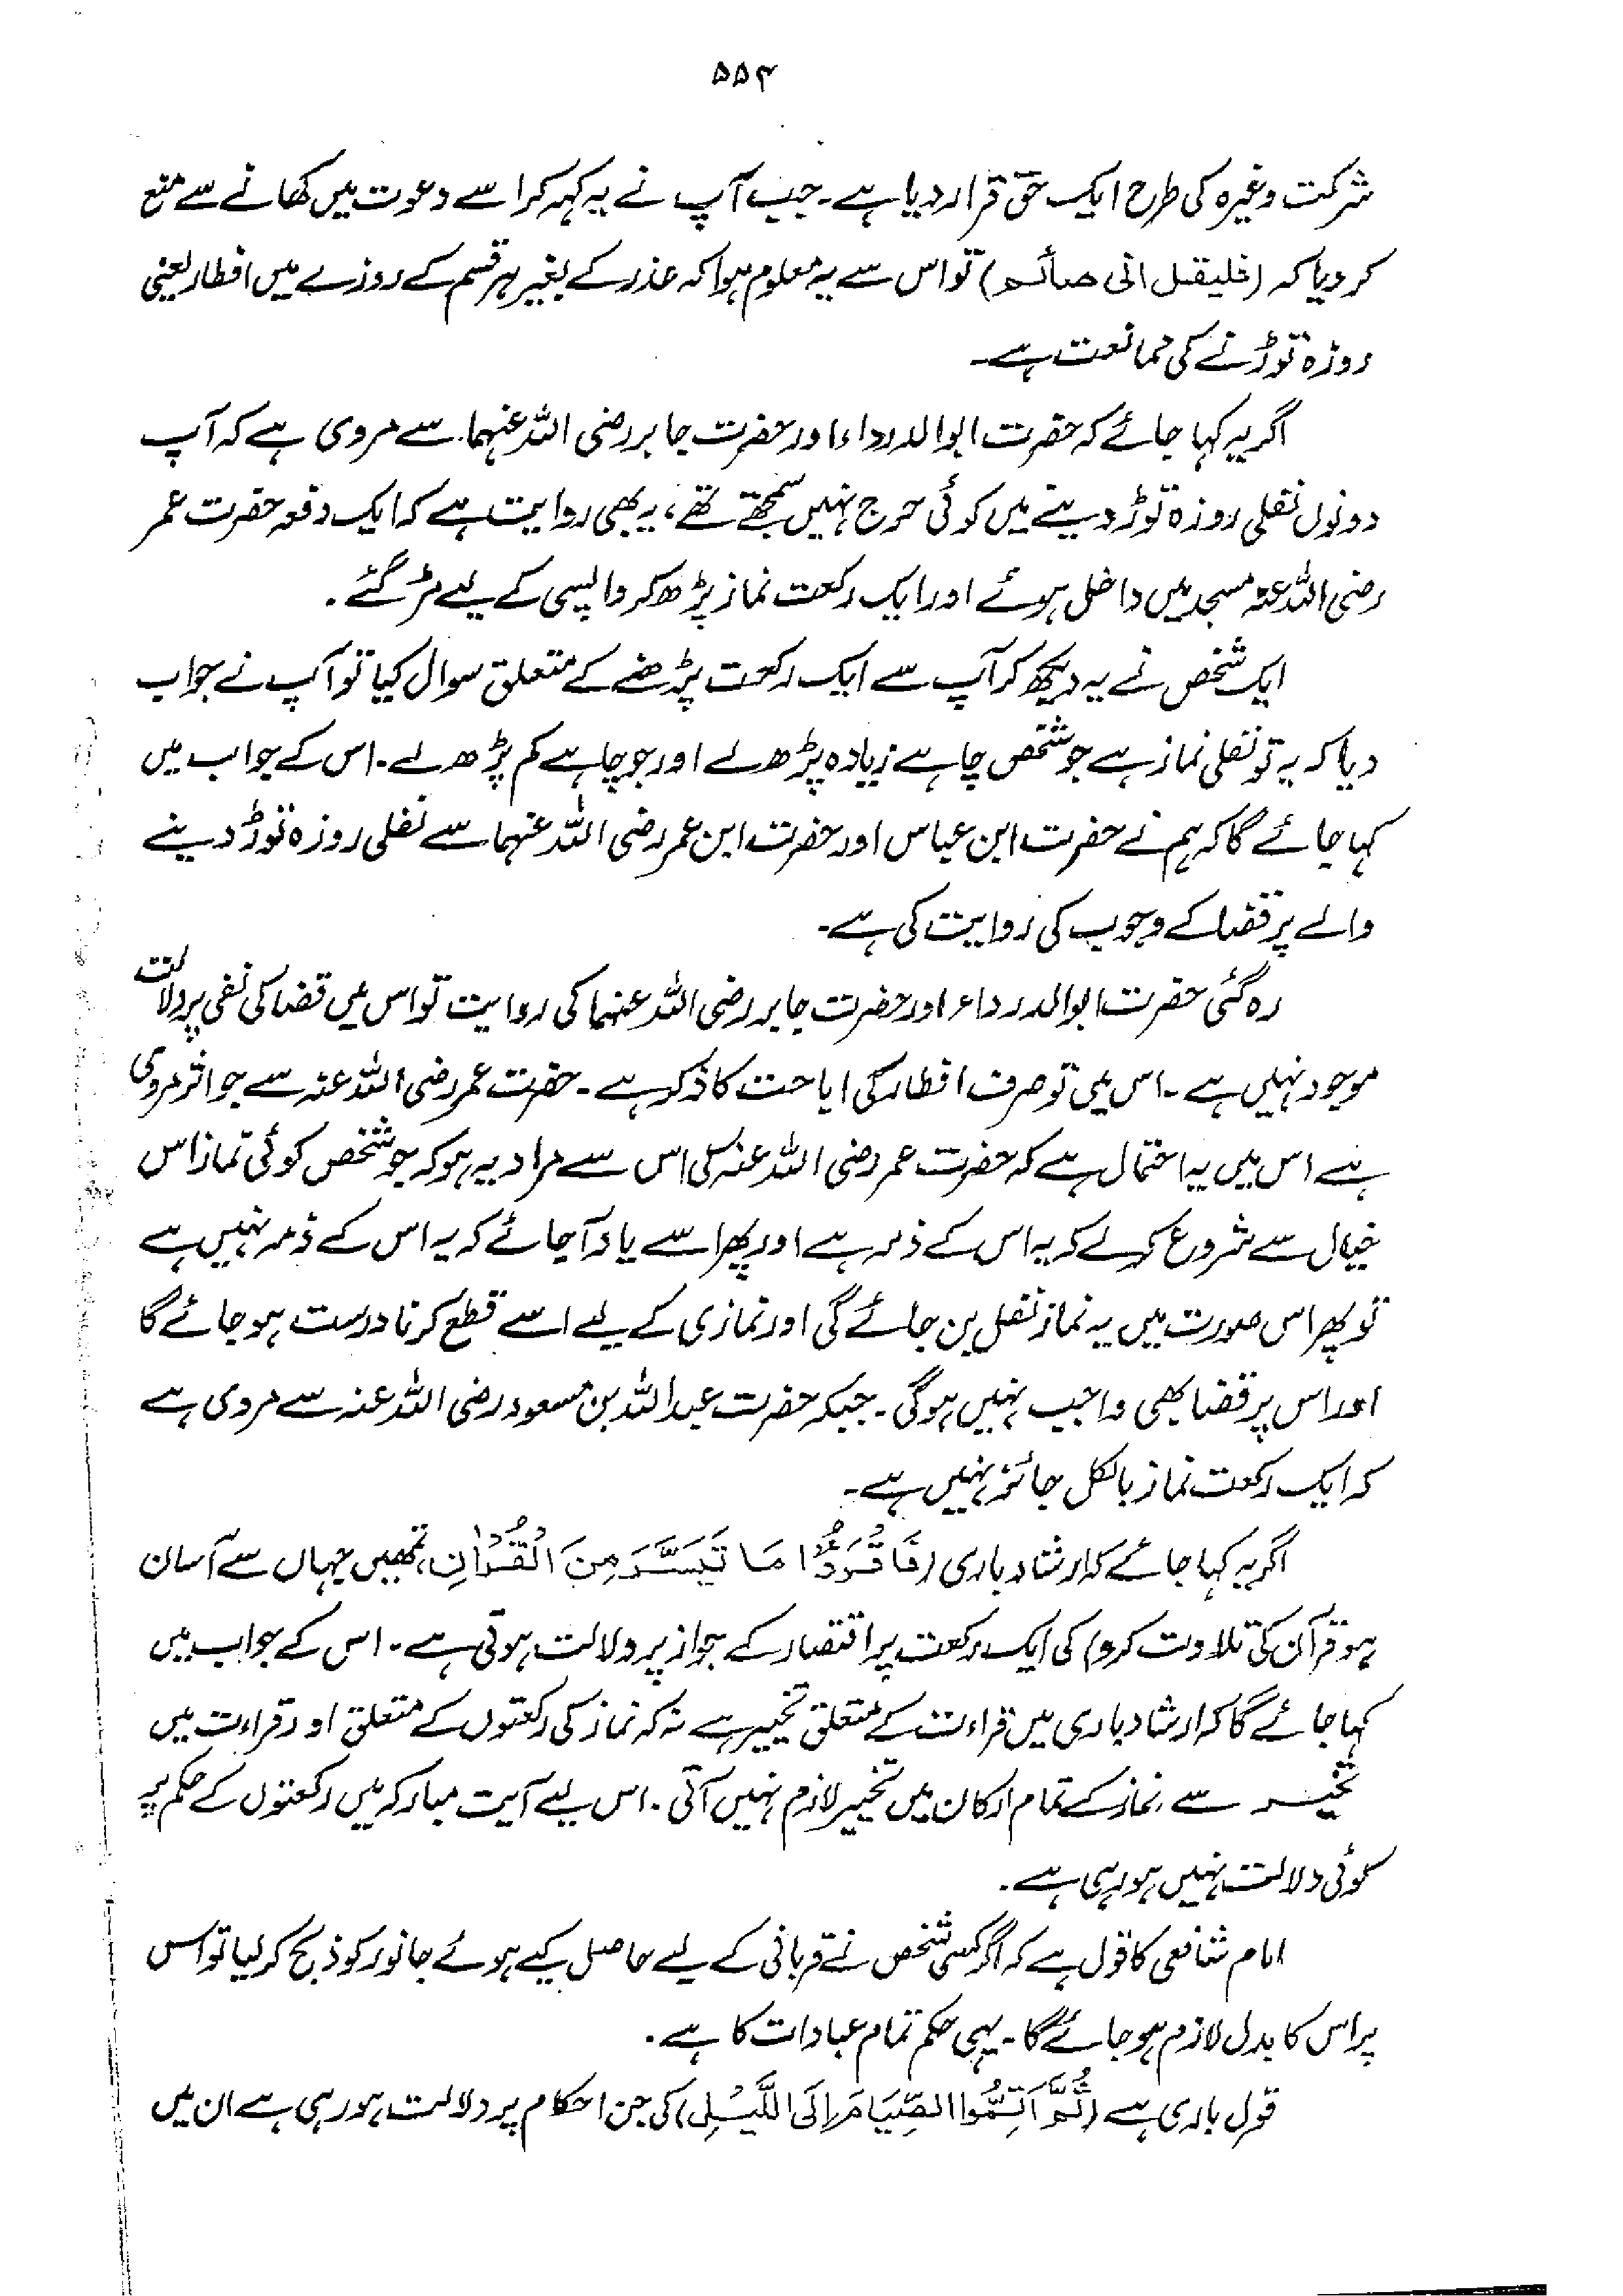 ۵۵۴
شرکت وغیرہ کی طرح ایک حق قرار دیا ہے۔ جب آپ نے یہ کہہ کر اسے دعوت میں کھانے سے منع
کر دیا کہ (فلیقل انی صائم) تو اس سے یہ معلوم ہوا کہ عذر کے بغیر ہر قسم کے روزے میں افطار یعنی
روزہ توڑنے کی ممانعت ہے۔
اگر یہ کہا جائے کہ حضرت ابوالدرداء اور حضرت جابر رضی اللہ عنہما سے مروی ہے کہ آپ
دونوں نفلی روزہ توڑ دینے میں کوئی حرج نہیں سمجھتے تھے، یہ بھی روایت ہے کہ ایک دفعہ حضرت عمر
رضی اللہ عنہ مسجد میں داخل ہوئے اور ایک رکعت نماز پڑھ کر واپسی کے لیے مڑ گئے۔
ایک شخص نے یہ دیکھ کر آپ سے ایک رکعت پڑھنے کے متعلق سوال کیا تو آپ نے جواب
دیا کہ یہ تو نفلی نماز ہے جو شخص چاہے زیادہ پڑھ لے اور جو چاہے کم پڑھ لے۔ اس کے جواب میں
کہا جائے گا کہ ہم نے حضرت ابن عباس اور حضرت ابن عمر رضی اللہ عنہما سے نفلی روزہ توڑ دینے
والے پر قضا کے وجوب کی روایت کی ہے۔
رہ گئی حضرت ابوالدرداء اور حضرت جابر رضی اللہ عنہما کی روایت تو اس میں قضا کی نفی پر دلالت
موجود نہیں ہے۔ اس میں تو صرف افطار کی اباحت کا ذکر ہے۔ حضرت عمر رضی اللہ عنہ سے جو اثر مروی
ہے اس میں یہ احتمال ہے کہ حضرت عمر رضی اللہ عنہ کی اس سے مراد یہ ہو کہ جو شخص کوئی نماز اس
خیال سے شروع کرلے کہ یہ اس کے ذمہ ہے اور پھر اسے یاد آجائے کہ یہ اس کے ذمہ نہیں ہے
تو پھر اس صورت میں یہ نماز نفل بن جائے گی اور نمازی کے لیے اسے قطع کرنا درست ہو جائے گا
اور اس پر قضا بھی واجب نہیں ہوگی۔ جبکہ حضرت عبداللہ بن مسعود رضی اللہ عنہ سے مروی ہے
کہ ایک رکعت نماز بالکل جائز نہیں ہے۔
اگر یہ کہا جائے کہ ارشاد باری (فَاقْرَءُوْا مَا تَیَسَّرَ مِنَ الْقُرْاٰنِ، تمھیں جہاں سے آسان
ہو قرآن کی تلاوت کرو) کی ایک رکعت پر اقتصار کے جواز پر دلالت ہوتی ہے۔ اس کے جواب میں
کہا جائے گا کہ ارشاد باری میں قراءت کے متعلق تخییر ہے نہ کہ نماز کی رکعتوں کے متعلق اور قراءت میں
تخییر سے نماز کے تمام ارکان میں تخییر لازم نہیں آتی۔ اس لیے آیت مبارکہ میں رکعتوں کے حکم پر
کوئی دلالت نہیں ہو رہی ہے۔
امام شافعی کا قول ہے کہ اگر کسی شخص نے قربانی کے لیے حاصل کیے ہوئے جانور کو ذبح کر لیا تو اس
پر اس کا بدل لازم ہو جائے گا۔ یہی حکم تمام عبادات کا ہے۔
قول باری ہے (ثُمَّ اَتِمُّوا الصِّیَامَ اِلَی اللَّیْلِ) کی جن احکام پر دلالت ہو رہی ہے ان میں